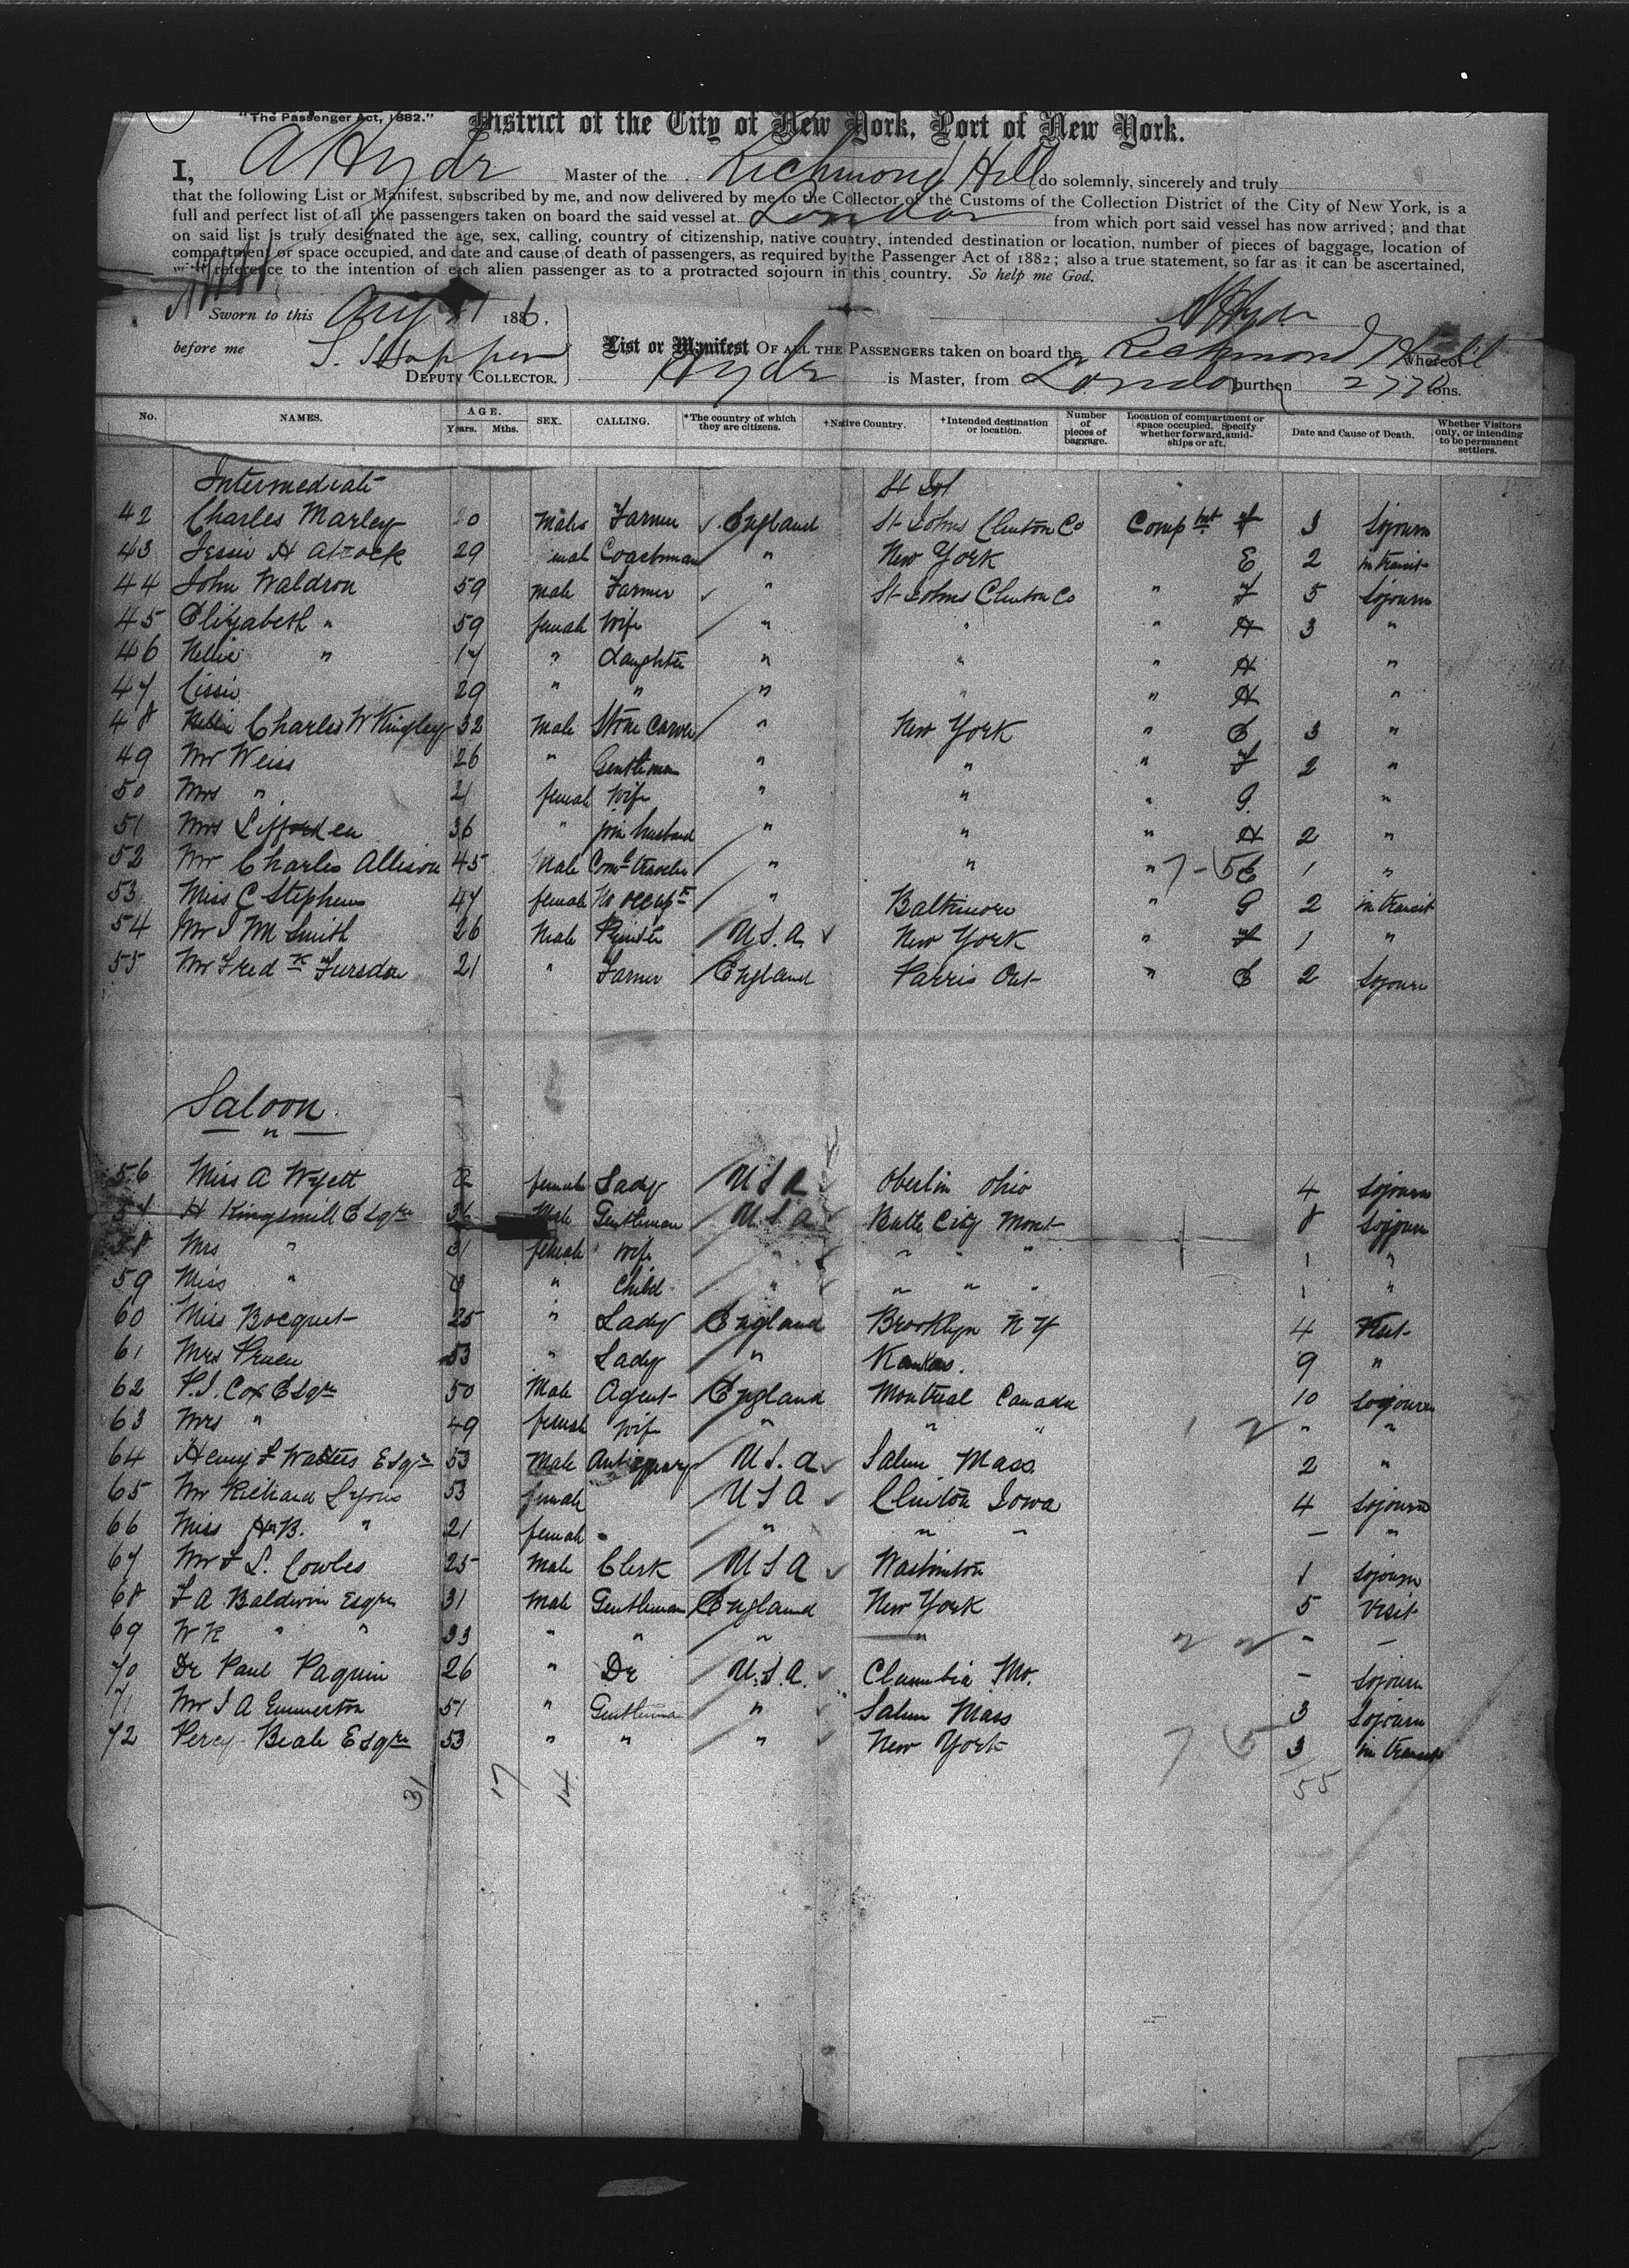 "The Passenger Act, 1882."
District of the City of New York, Port of New York.
I, A Hyde Master of the Richmond Hill do solemnly, sincerely and truly
that the following List or Manifest, subscribed by me, and now delivered by me to the Collector of the Customs of the Collection District of the City of New York, is a
full and perfect list of all the passengers taken on board the said vessel at London from which port said vessel has now arrived; and that
on said list is truly designated the age, sex, calling, country of citizenship, native country, intended destination or location, number of pieces of baggage, location of
compartment or space occupied, and date and cause of death of passengers, as required by the Passenger Act of 1882; also a true statement, so far as it can be ascertained,
with reference to the intention of each alien passenger as to a protracted sojourn in this country. So help me God.
Sworn to this Aug 1 1886. A Hyde
before me List or Manifest OF ALL THE PASSENGERS taken on board the Richmond Hill whereof
DEPUTY COLLECTOR. Hyde is Master, from London burthen 2770 tons.
No. NAMES. AGE. Years. Mths. SEX. CALLING. *The country of which they are citizens. †Native Country. †Intended destination or location. Number of pieces of baggage. Location of compartment or space occupied. Specify whether forward, amidships or aft. Date and Cause of Death. Whether Visitors only, or intending to be permanent settlers.
Intermediate
42 Charles Marley 20 Male Farmer England St Johns Clinton Co Compmt 3 Sojourn
43 Jessie H 29 Coachman " New York E 2 in transit
44 John Waldron 59 male Farmer " St Johns Clinton Co " 5 Sojourn
45 Elizabeth " 59 female Wife " " " H 3 "
46 Nellie " 17 " daughter " " " H "
47 Cissie 29 " " " " " H "
48 Charles W Kingley 32 Male Stone Carver " New York " 3 "
49 Mr Weiss 26 " Gentleman " " " 2 "
50 Mrs " 21 female Wife " " " G. "
51 Mrs 36 " join husband " " " H 2 "
52 Mr Charles Allison 45 Male Coml traveler " " " 7-5 E 1 "
53 Miss C Stephens 47 female No occupn " Baltimore " G 2 in transit
54 Mr J M Smith 26 Male U.S.A. New York " 1 "
55 Mr Fredk 21 " Farmer England Parris Ont " 2 Sojourn
Saloon
"
56 Miss A Wyett female Lady U S A Oberlin Ohio 4 Sojourn
57 H Kingsmill Esqre 36 Male Gentleman U S A Butte City Mont 8 Sojourn
58 Mrs " 31 female Wife " " " " 1 "
59 Miss " " Child " " " " 1 "
60 Miss Bocquet 25 " Lady England Brooklyn N Y 4 Visit
61 Mrs 53 " Lady " Kansas. 9 "
62 P.J. Cox Esqre 50 Male Agent England Montreal Canada 10 Sojourn
63 Mrs " 49 female Wife " " " 1 2 " "
64 Henry F Waters Esqre 53 Male Antiquary U.S.A Salem Mass. 2 "
65 Mr Richard Lyons 53 female U S A Clinton Iowa 4 Sojourn
66 Miss H B. " 21 female " " " — "
67 Mr F L. Cowles 25 Male Clerk U S A Washinton 1 Sojourn
68 F A Baldwin Esqre 31 Male Gentleman England New York 5 Visit
69 W R " " 33 " " " " " —
70 Dr Paul Paquin 26 " Dr U.S.A. Clumbia Mo. - Sojourn
71 Mr J A Emmerton 51 " Gentleman " Salem Mass 3 Sojourn
72 Percy Beale Esqre 53 " " " New York 7 5 3 in transit
31 17 14 55